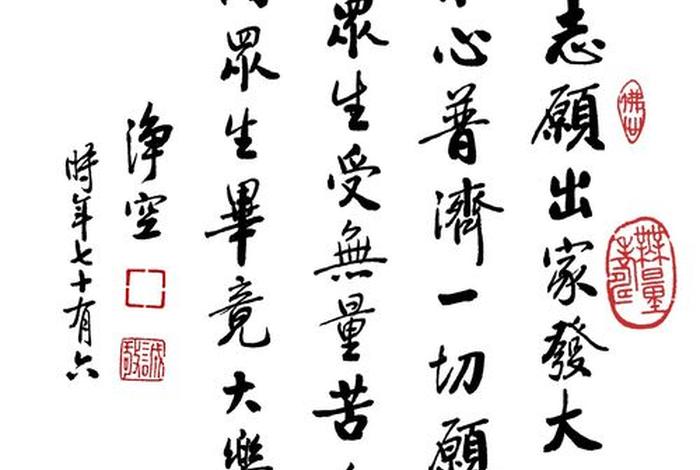 無量壽佛
志願出家發大
心普濟一切願
眾生受無量苦
眾生畢竟大樂
淨空
誠敬
時年七十有六